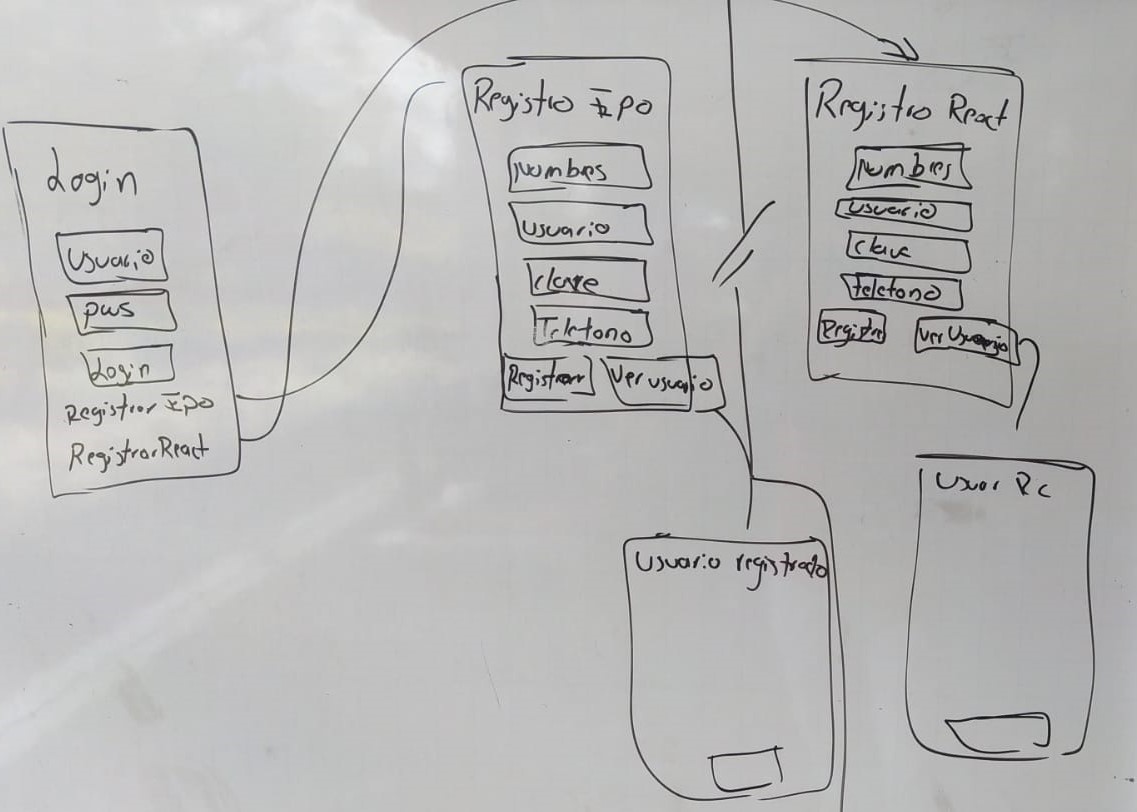 Login
Usuario
pws
Login
Registrar Expo
RegistrarReact
Registro Expo
Nombres
Usuario
clave
Telefono
Registrar
Ver usuario
Registro React
Nombres
Usuario
clave
telefono
Registrar
Ver Usuario
Usuario registrado
Usuar Rc